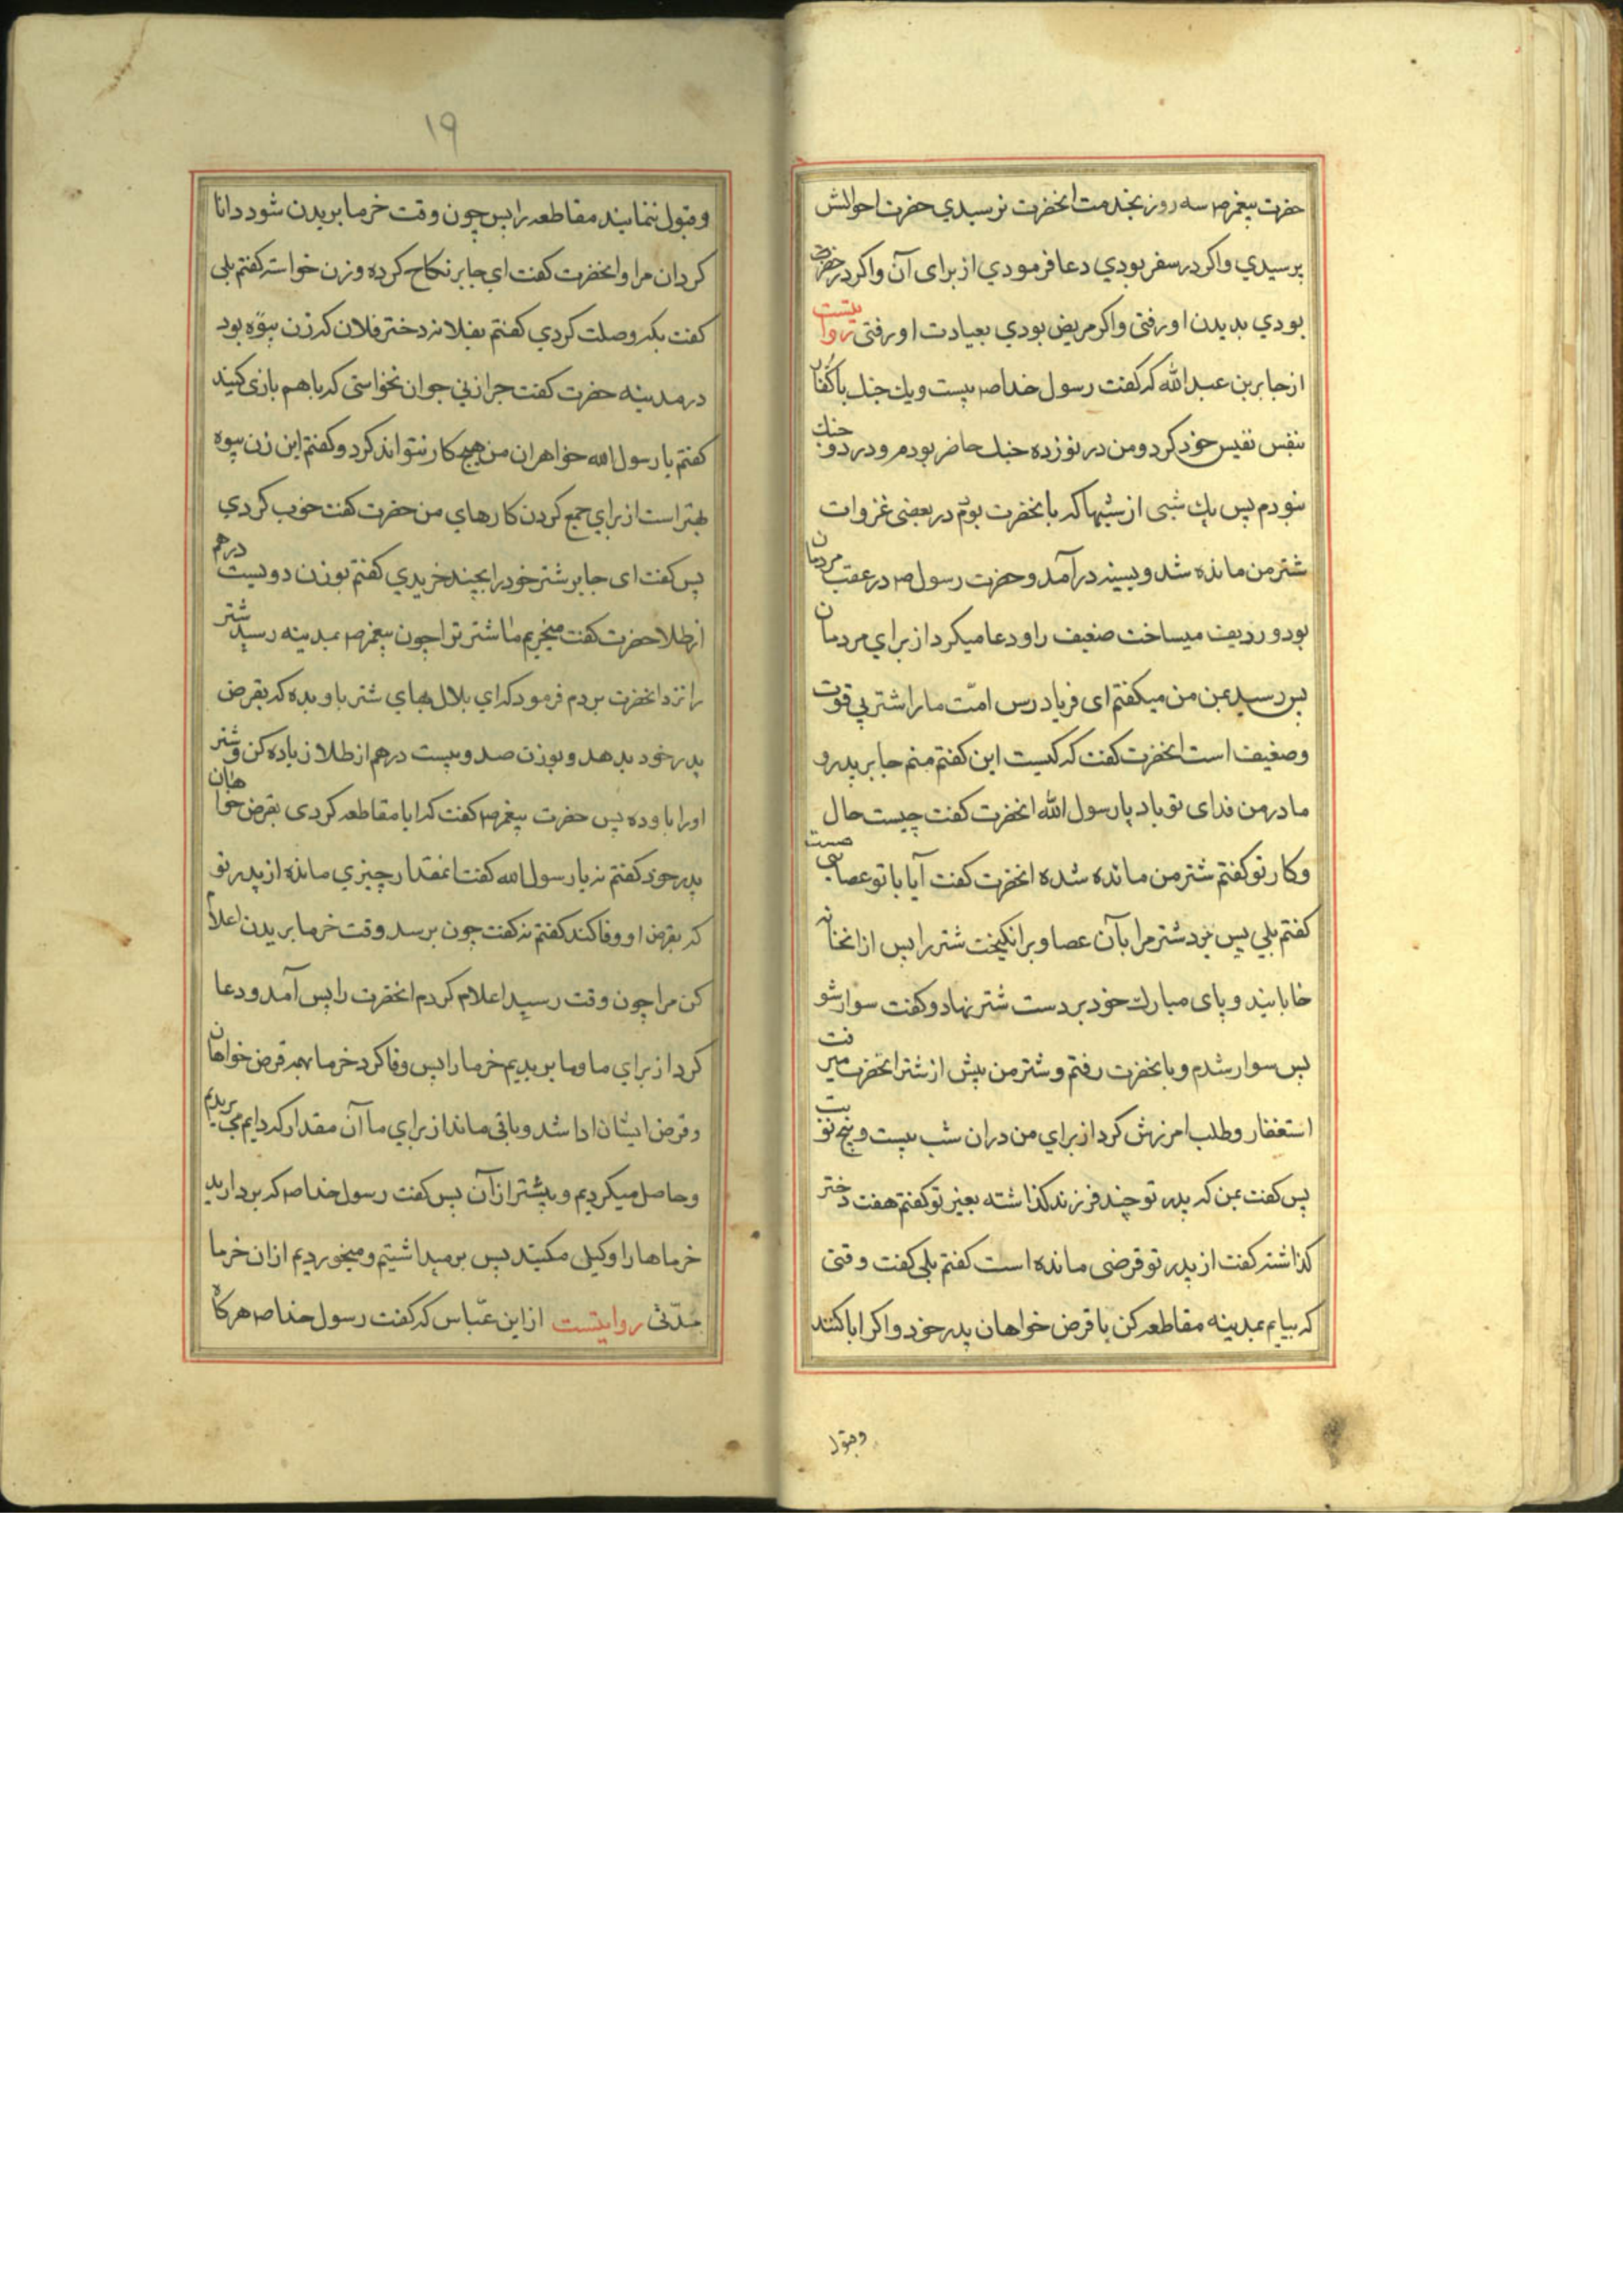 حضرت پیغمبر ص سه روز بخدمت انحضرت نرسیدي حضرت احوالش
پرسیدي واکر در سفر بودي دعا فرمودي از برای آن واکر در حضر
بودي بدیدن او رفتی واکر مریض بودي بعیادت او رفتی روایتست
از جابر بن عبدالله که کفت رسول خدا ص بیست ویك جنك باکفار
بنفس نفیس خود کرد ومن در نوزده جنك حاضر بودم ودر دو جنك
نبودم پس یك شبی از شبها که با انحضرت بودم در بعضی غزوات
شتر من مانده شد وبسینه درآمد وحضرت رسول ص در عقب مردمان
بود وردیف میساخت ضعیف را ودعا میکرد از براي مردمان
پس رسید بمن من میکفتم ای فریادرس امّت ما را شتر بی قوت
وضعیف است انحضرت کفت که کیست این کفتم منم جابر پدر و
مادر من فدای تو باد یا رسول الله انحضرت کفت چیست حال
وکار تو کفتم شتر من مانده شده انحضرت کفت آیا با تو عصایی هست
کفتم بلي پس بزد شتر مرا بآن عصا وبرانکیخت شتر را پس از انجا
خابانید و پای مبارك خود بر دست شتر نهاد وکفت سوار شو
پس سوار شدم وبا انحضرت رفتم وشتر من پیش از شتر انحضرت میرفت
استغفار وطلب امرزش کرد از براي من دران شب بیست وپنج نوبت
پس کفت بمن که پدر تو چند فرزند کذاشته بغیر تو کفتم هفت دختر
کذاشته کفت از پدر تو قرضی مانده است کفتم بلی کفت وقتی
که بیایم بمدینه مقاطعه کن با قرض خواهان پدر خود واکر ابا کنند
وقبول
۱۹
وقبول ننمایند مقاطعه را پس چون وقت خرما بریدن شود دانا
کردان مرا وانحضرت کفت اي جابر نکاح کرده وزن خواسته کفتم بلی
کفت بکه وصلت کردي کفتم بفلانه دختر فلان که زن بیوه بود
در مدینه حضرت کفت چرا زني جوان نخواستی که با هم بازی کنید
کفتم یا رسول الله خواهران من هیچ کار نتواند کرد وکفتم این زن بیوه
بهتر است از براي جمع کردن کارهاي من حضرت کفت خوب کردي
پس کفت ای جابر شتر خود را بچند خریدي کفتم بوزن دویست درهم
از طلا حضرت کفت میخریم ما شتر ترا چون پیغمبر ص بمدینه رسید شتر
را نزد انحضرت بردم فرمود که اي بلال بهاي شتر باو بده که بقرض
پدر خود بدهد وبوزن صد وبیست درهم از طلا زیاده کن وشتر
او را باو ده پس حضرت پیغمبر ص کفت که ایا مقاطعه کردی بقرض خواهان
پدر خود کفتم نه یا رسول الله کفت انمقدار چیزي مانده از پدر تو
که بقرض او وفا کند کفتم نه کفت چون برسد وقت خرما بریدن اعلام
کن مرا چون وقت رسید اعلام کردم انحضرت را پس آمد ودعا
کرد از براي ما وما بریدیم خرما را پس وفا کرد خرما بهمه قرض خواهان
وقرض ایشان ادا شد وباقی ماند از براي ما آن مقدار که دایم می بریدیم
وحاصل میکردیم وبیشتر از آن پس کفت رسول خدا ص که بردارید
خرماها را وکیل مکنید پس برمیداشتیم ومیخوردیم ازان خرما
مدّتی روایتست از ابن عبّاس که کفت رسول خدا ص هرکاه